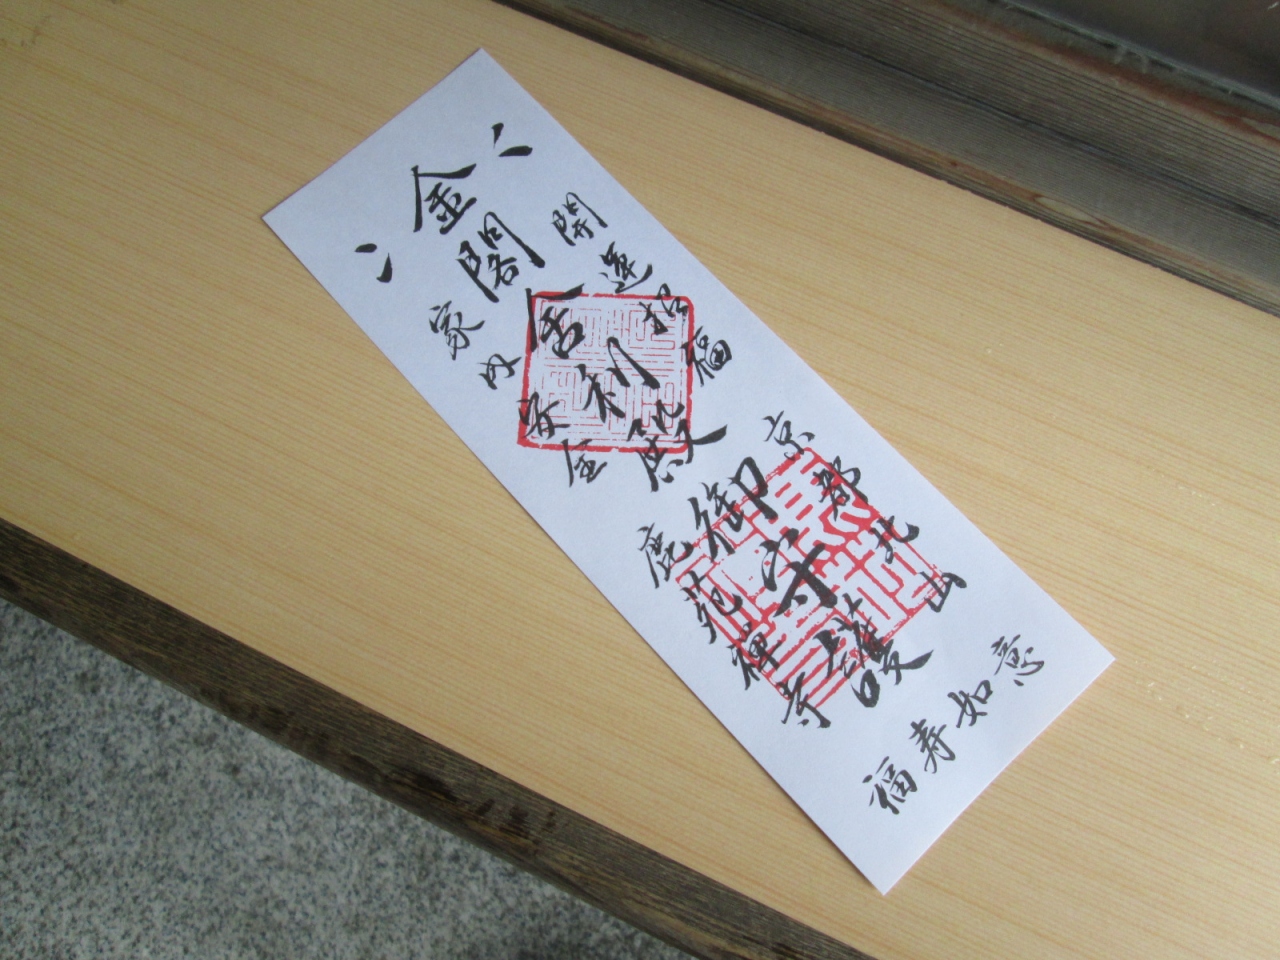 開運招福
金閣舎利殿
御守護
家内安全
京都北山
鹿苑禅寺
福寿如意